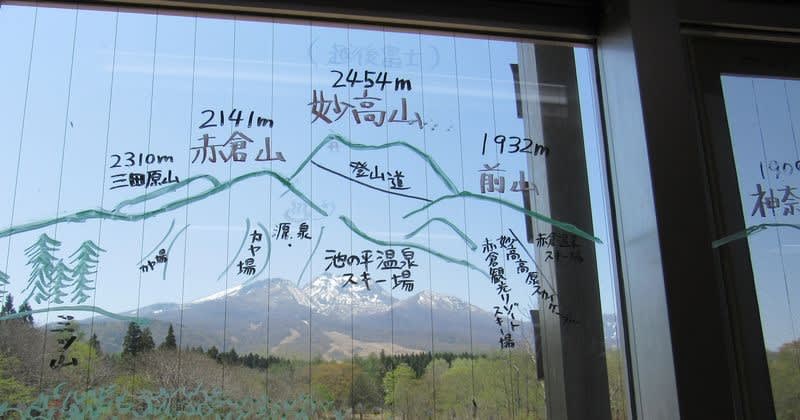 2454m
妙高山
2141m
赤倉山
2310m
三田原山
1932m
前山
登山道
源泉
カヤ場
池の平温泉
スキー場
赤倉観光リゾート
スキー場
妙高高原スカイケーブル
赤倉温泉
スキー場
190
神奈